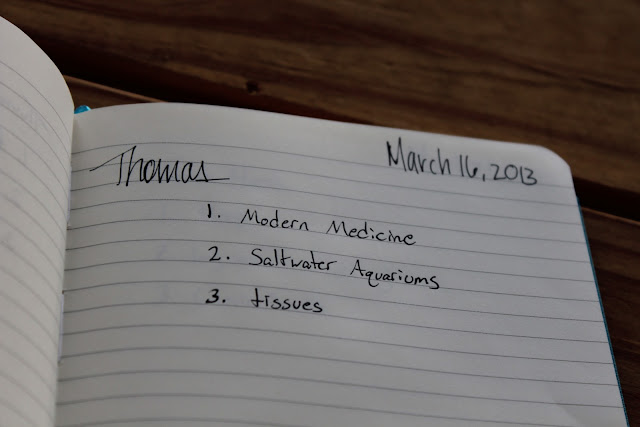 Thomas
March 16, 2013
1. Modern Medicine
2. Saltwater Aquariums
3. tissues